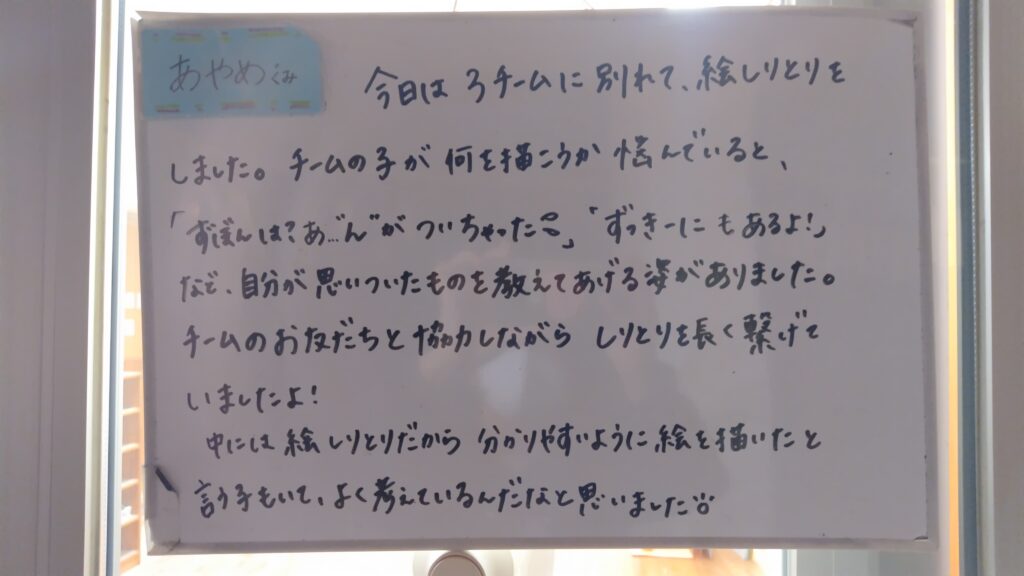 あやめぐみ
今日は3チームに別れて、絵しりとりを
しました。チームの子が何を描こうか悩んでいると、
「ずぼんは?あ…"ん"がついちゃった」「ずっきーにもあるよ!」
など、自分が思いついたものを教えてあげる姿がありました。
チームのお友だちと協力しながらしりとりを長く繋げて
いましたよ!
中には絵しりとりだから分かりやすいように絵を描いたと
言う子もいて、よく考えているんだなと思いました